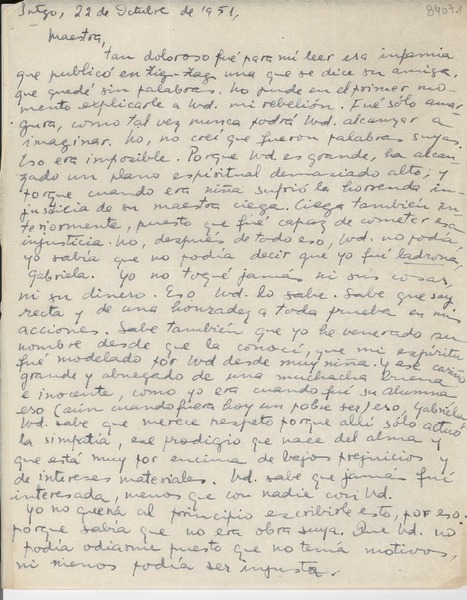 Sntgo, 22 de Octubre de 1951,
84071
Maestra,
tan doloroso fué para mí leer esa infamia
que publicó en Zig-Zag una que se dice su amiga,
que quedé sin palabras. No pude en el primer mo-
mento explicarle a Ud. mi rebelión. Fué sólo amar-
gura, como tal vez nunca podrá Ud. alcanzar a
imaginar. No, no creí que fueron palabras suyas.
Eso era imposible. Porque Ud es grande, ha alcan-
zado un plano espiritual demasiado alto, y
porque cuando era niña sufrió la horrenda in-
justicia de su maestra ciega. Ciega también in-
teriormente, puesto que fué capaz de cometer esa
injusticia. No, después de todo eso, Ud. no podía,
yo sabía que no podía decir que yo fuí ladrona,
Gabriela. Yo no toqué jamás ni sus cosas,
ni su dinero. Eso Ud. lo sabe. Sabe que soy
recta y de una honradez a toda prueba en mis
acciones. Sabe también que yo he venerado su
nombre desde que la conocí, que mi espíritu
fué modelado por Ud desde muy niña. Y ese cariño
grande y abnegado de una muchacha buena
e inocente, como yo era cuando fuí su alumna
eso (aún cuando fuera hoy un pobre ser) eso, Gabriela
Ud. sabe que merece respeto porque allí sólo actuó
la simpatía, ese prodigio que nace del alma y
que está muy por encima de bajos prejuicios y
de intereses materiales. Ud. sabe que jamás fuí
interesada, menos que con nadie con Ud.
Yo no quería al principio escribirle esto, por eso:
porque sabía que no era obra suya. Que Ud. no
podía odiarme puesto que no tenía motivos,
ni menos podía ser injusta.